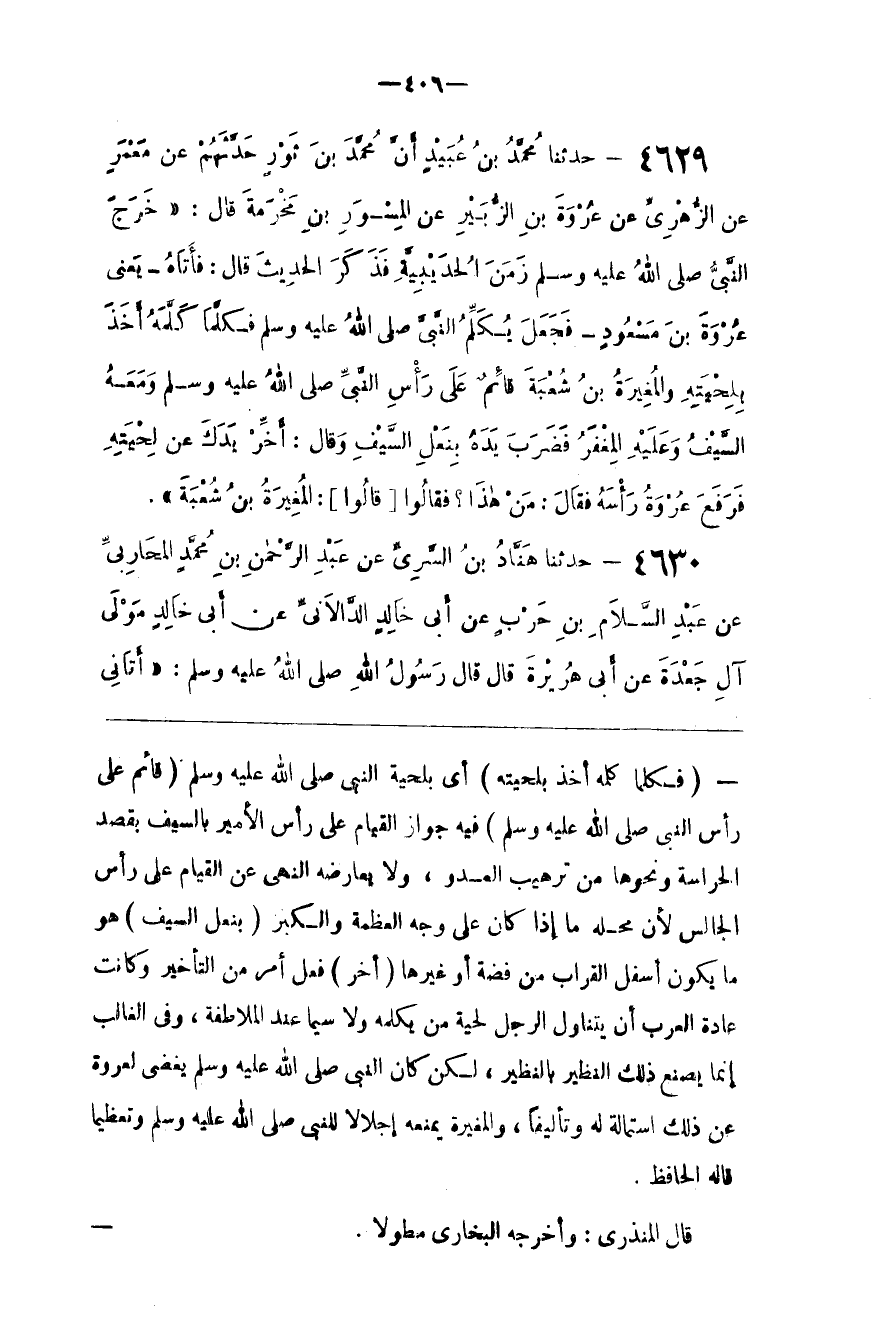 —٤٠٦—
٤٦٢٩ – حدثنا مُحمَّدُ بنُ عُبَيْدٍ أَنَّ مُحمَّدَ بنَ ثَوْرٍ حَدَّثَهُمْ عن مَعْمَرٍ
عن الزُّهْرِىِّ عن عُرْوَةَ بنِ الزُّبَيْرِ عن المِسْوَرِ بنِ مَخْرَمةَ قال : « خَرَجَ
النَّبىُّ صلى اللهُ عليه وسلم زَمَنَ الْحدَيْبِيَّةِ فَذَكَرَ الحديثَ قال : فأَتَاهُ – يَعنى
عُرْوَةَ بنَ مَسْعُودٍ – فَجَعَلَ يُكَلِّمُ النَّبىَّ صلى اللهُ عليه وسلم فكلَّمَا كَلَّمَهُ أَخَذَ
بِلِحْيَتِهِ وَالمُغِيرَةُ بنُ شُعْبَةَ قائمٌ عَلَى رَأْسِ النَّبىِّ صلى اللهُ عليه وسلم وَمَعَهُ
السَّيْفُ وَعَلَيْهِ المِغْفَرُ فَضَرَبَ يَدَهُ بِنَعْلِ السَّيْفِ وَقال : أَخِّرْ يَدَكَ عن لِحْيَتِهِ
فَرَفَعَ عُرْوَةُ رَأْسَهُ فقالَ : مَنْ هٰذَا ؟ فقالُوا [ قالُوا ] : المُغِيرَةُ بنُ شُعْبَةَ » .
٤٦٣٠ – حدثنا هَنَّادُ بنُ السَّرِىِّ عن عَبْدِ الرَّحْمٰنِ بنِ مُحمَّدٍ المحَارِبىِّ
عن عَبْدِ السَّلَامِ بنِ حَرْبٍ عن أَبى خَالِدٍ الدَّالَانىِّ عن أَبى خَالِدٍ مَوْلَى
آلِ جَعْدَةَ عن أَبى هُرَيْرةَ قال قال رَسُولُ اللهِ صلى اللهُ عليه وسلم : « أَتَانِى
— ( فكلما كلمه أخذ بلحيته ) أى بلحية النبى صلى الله عليه وسلم ( قائم على
رأس النبى صلى الله عليه وسلم ) فيه جواز القيام على رأس الأمير بالسيف بقصد
الحراسة ونحوها من ترهيب العدو ، ولا يعارضه النهى عن القيام على رأس
الجالس لأن محله ما إذا كان على وجه العظمة والكبر ( بنعل السيف ) هو
ما يكون أسفل القراب من فضة أو غيرها ( أخر ) فعل أمر من التأخير وكانت
عادة العرب أن يتناول الرجل لحية من يكلمه ولا سيما عند الملاطفة ، وفى الغالب
إنما يصنع ذلك النظير بالنظير ، لكن كان النبى صلى الله عليه وسلم يغضى لعروة
عن ذلك استمالة له وتأليفاً ، والمغيرة يمنعه إجلالا للنبى صلى الله عليه وسلم وتعظيما
قاله الحافظ .
قال المنذرى : وأخرجه البخارى مطولا . —